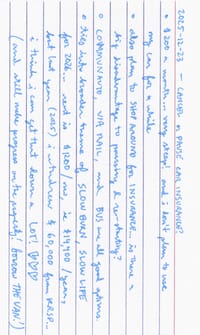 2025-12-23 — CANCEL or PAUSE CAR INSURANCE?
• $200 a month... very steep! and i don't plan to use
my car for a while
• also plan to SHOP AROUND for INSURANCE... is there a
big disadvantage to pausing & re-starting?
• COMMUNAUTO, VIA RAIL, and BUS are all good options
• ties into broader theme of SLOW BURN, SLOW LIFE
for 2026... rent is $1200/mo, ie $14,400/year,
but last year (2025) i withdrew $60,000 from RRSP...
i think i can get that down a LOT! ♡♡♡
(and still make progress on the property! BORROW THE VAN!)